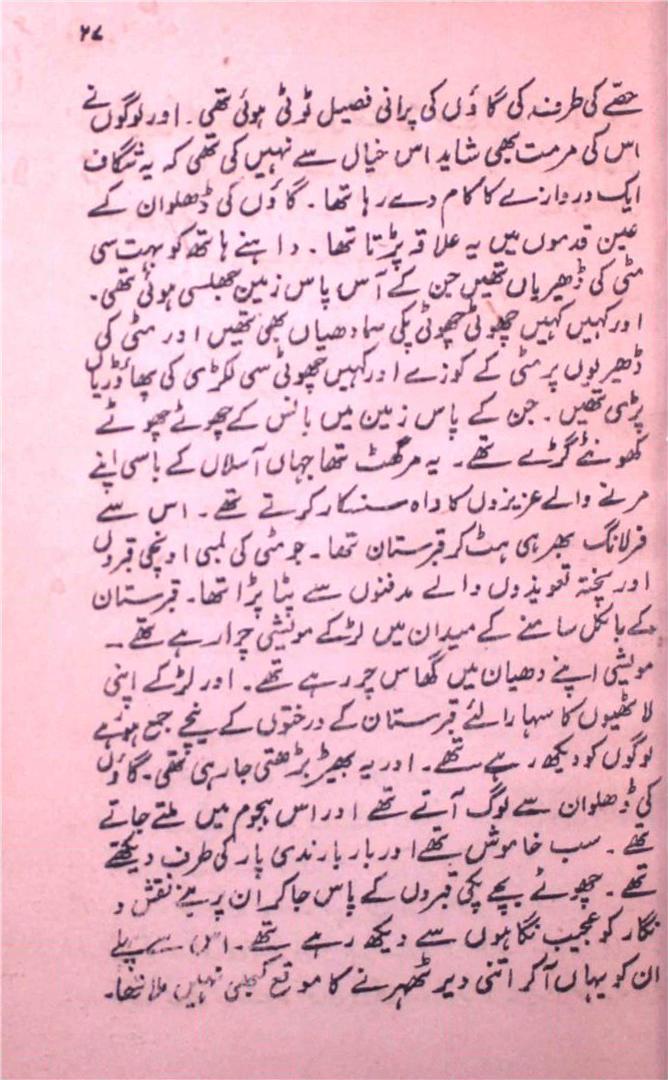 ۲۷
حصّے کی طرف کی گاؤں کی پرانی فصیل ٹوٹی ہوئی تھی۔ اور لوگوں نے
اس کی مرمت بھی شاید اس خیال سے نہیں کی تھی کہ یہ شگاف
ایک دروازے کا کام دے رہا تھا۔ گاؤں کی ڈھلوان کے
عین قدموں میں یہ علاقہ پڑتا تھا۔ داہنے ہاتھ کو بہت سی
مٹی کی ڈھیریاں تھیں جن کے آس پاس زمین جھلسی ہوئی تھی۔
اور کہیں کہیں چھوٹی چھوٹی پکی سمادھیاں بھی تھیں اور مٹی کی
ڈھیریوں پر مٹی کے کوزے اور کہیں چھوٹی سی لکڑی کی پھاؤڑیاں
پڑی تھیں۔ جن کے پاس زمین میں بانس کے چھوٹے چھوٹے
کھونٹے گڑے تھے۔ یہ مرگھٹ تھا جہاں آسلاں کے باسی اپنے
مرنے والے عزیزوں کا داہ سنسکار کرتے تھے۔ اس سے
فرلانگ بھر ہی ہٹ کر قبرستان تھا۔ جو مٹی کی لمبی اونچی قبروں
اور پختہ تعویذوں والے مدفنوں سے پٹا پڑا تھا۔ قبرستان
کے بالکل سامنے کے میدان میں لڑکے مویشی چرا رہے تھے۔
مویشی اپنے دھیان میں گھاس چر رہے تھے۔ اور لڑکے اپنی
لاٹھیوں کا سہارا لئے قبرستان کے درختوں کے نیچے جمع ہوئے
لوگوں کو دیکھ رہے تھے۔ اور یہ بھیڑ بڑھتی جا رہی تھی۔ گاؤں
کی ڈھلوان سے لوگ آتے تھے اور اس ہجوم میں ملتے جاتے
تھے۔ سب خاموش تھے اور بار بار ندی پار کی طرف دیکھتے
تھے۔ چھوٹے بچے پکی قبروں کے پاس جا کر ان پر بنے نقش و
نگار کو عجیب نگاہوں سے دیکھ رہے تھے۔ اس سے پہلے
ان کو یہاں آ کر اتنی دیر ٹھہرنے کا موقع کبھی نہیں ملا تھا۔